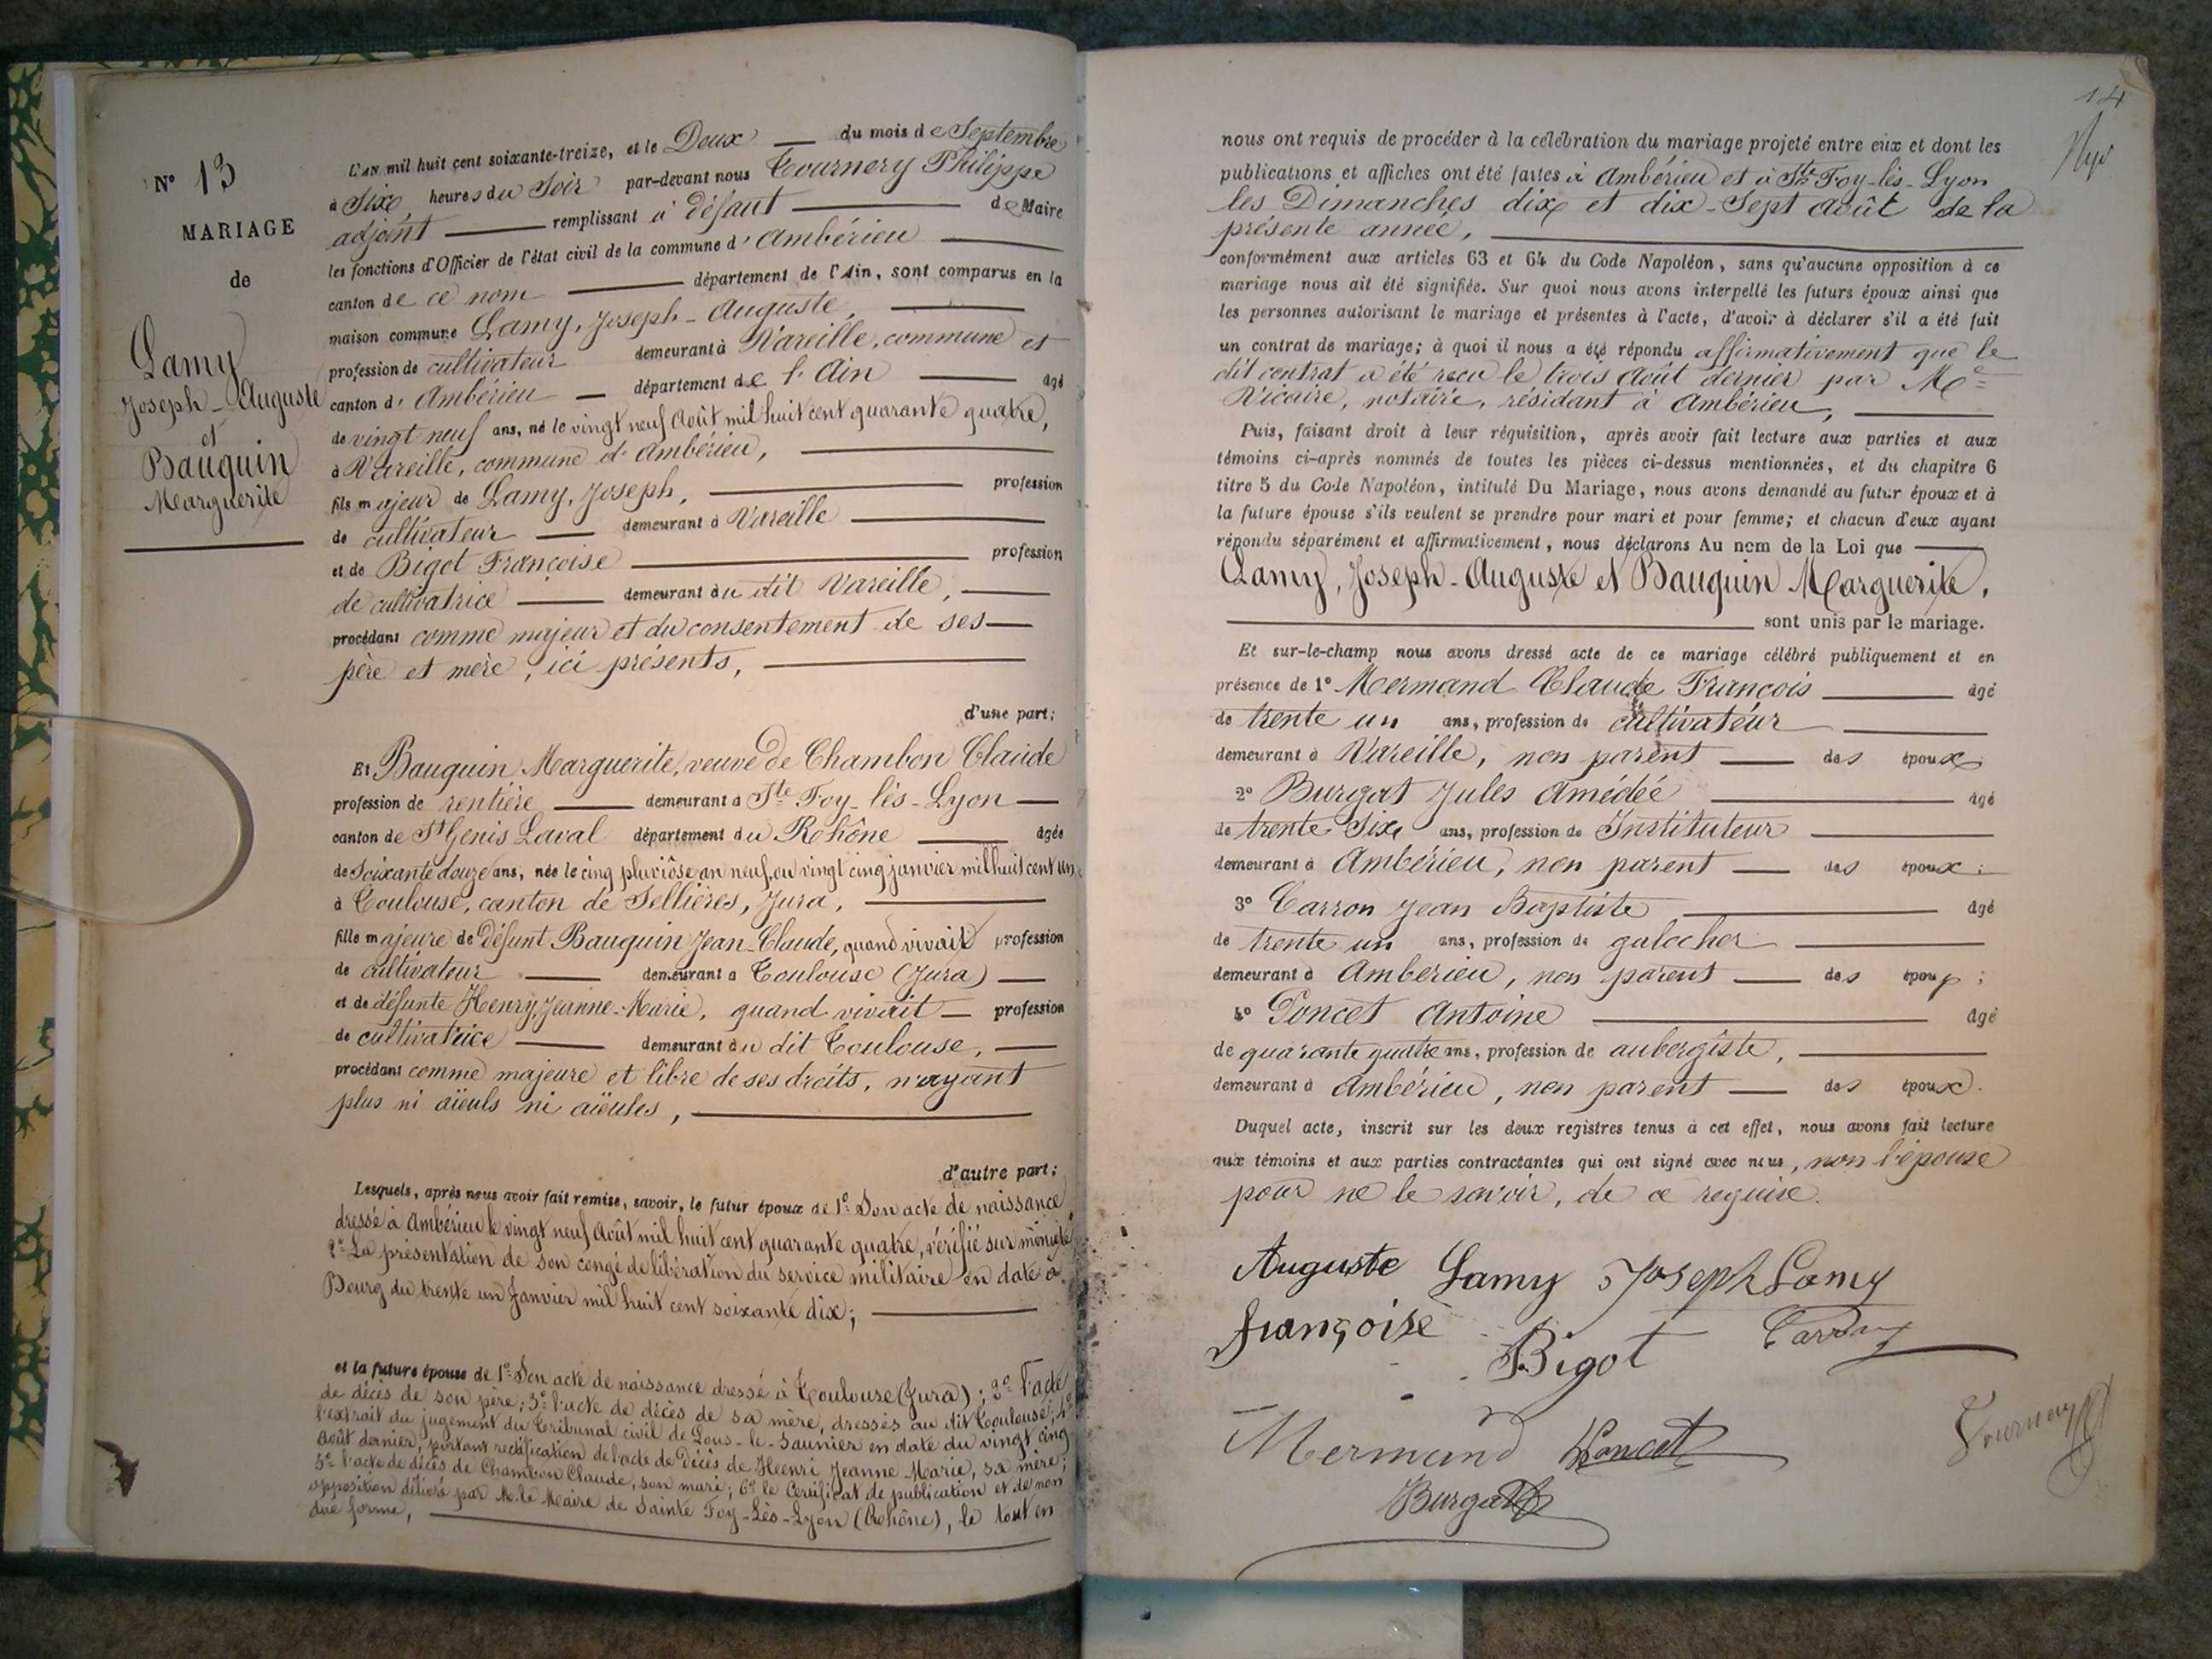 N° 13
MARIAGE
de
Lamy
Joseph-Auguste
et
Bauquin
Marguerite
L'AN mil huit cent soixante-treize, et le Deux du mois de Septembre
à Six heures du Soir par-devant nous Tournery Philippe
adjoint remplissant à défaut de Maire
les fonctions d'Officier de l'état civil de la commune d'Ambérieu
canton de ce nom département de l'Ain, sont comparus en la
maison commune Lamy, Joseph-Auguste,
profession de cultivateur demeurant à Vareille, commune et
canton d'Ambérieu département de l'Ain âgé
de vingt neuf ans, né le vingt neuf Août mil huit cent quarante quatre,
à Vareille, commune d'Ambérieu,
fils majeur de Lamy, Joseph, profession
de cultivateur demeurant à Vareille
et de Bigot Françoise profession
de cultivatrice demeurant au dit Vareille,
procédant comme majeur et du consentement de ses
père et mère, ici présents,
d'une part;
Et Bauquin Marguerite, veuve de Chambon Claude
profession de rentière demeurant à Ste Foy-lès-Lyon
canton de St Genis Laval département du Rohône âgée
de Soixante douze ans, née le cinq pluviôse an neuf, ou vingt cinq janvier mil huit cent un,
à Toulouse, canton de Sellières, Jura,
fille majeure de défunt Bauquin Jean-Claude, quand vivait profession
de cultivateur demeurant à Toulouse (Jura)
et de défunte Henry, Jeanne-Marie, quand vivait profession
de cultivatrice demeurant au dit Toulouse,
procédant comme majeure et libre de ses droits, n'ayant
plus ni aïeuls ni aïeules,
d'autre part;
Lesquels, après nous avoir fait remise, savoir, le futur époux de 1° Son acte de naissance
dressé à Ambérieu le vingt neuf Août mil huit cent quarante quatre, vérifié sur minute;
2° La présentation de son congé de libération du service militaire en date à
Bourg du trente un Janvier mil huit cent soixante dix;
et la future épouse de 1° Son acte de naissance dressé à Toulouse (Jura); 2° l'acte
de décès de son père; 3° l'acte de décès de sa mère, dressés au dit Toulouse; 4°
l'extrait du jugement du Tribunal civil de Lons-le-Saunier en date du vingt cinq
Août dernier, portant rectification de l'acte de Décès de Henri Jeanne Marie, sa mère;
5° l'acte de décès de Chambon Claude, son mari; 6° le Certificat de publication et de non
opposition délivré par M. le Maire de Sainte Foy-Lès-Lyon (Rohône), le tout en
due forme,
14
nous ont requis de procéder à la célébration du mariage projeté entre eux et dont les
publications et affiches ont été faites à Ambérieu et à Ste Foy-lès-Lyon
les Dimanches dix et dix-Sept Août de la
présente année,
conformément aux articles 63 et 64 du Code Napoléon, sans qu'aucune opposition à ce
mariage nous ait été signifiée. Sur quoi nous avons interpellé les futurs époux ainsi que
les personnes autorisant le mariage et présentes à l'acte, d'avoir à déclarer s'il a été fait
un contrat de mariage; à quoi il nous a été répondu affirmativement que le
dit contrat a été reçu le trois Août dernier par Me
Vicaire, notaire, résidant à Ambérieu,
Puis, faisant droit à leur réquisition, après avoir fait lecture aux parties et aux
témoins ci-après nommés de toutes les pièces ci-dessus mentionnées, et du chapitre 6
titre 5 du Code Napoléon, intitulé Du Mariage, nous avons demandé au futur époux et à
la future épouse s'ils veulent se prendre pour mari et pour femme; et chacun d'eux ayant
répondu séparément et affirmativement, nous déclarons Au nom de la Loi que
Lamy, Joseph-Auguste et Bauquin Marguerite,
sont unis par le mariage.
Et sur-le-champ nous avons dressé acte de ce mariage célébré publiquement et en
présence de 1° Mermand Claude François âgé
de trente un ans, profession de cultivateur
demeurant à Vareille, non parent des époux
2° Burgat Jules Amédéé âgé
de trente Six ans, profession de Instituteur
demeurant à Ambérieu, non parent des époux;
3° Carron Jean Baptiste âgé
de trente un ans, profession de galocher
demeurant à Amberieu, non parent des époux;
4° Poncet Antoine âgé
de quarante quatre ans, profession de aubergiste,
demeurant à Ambérieu, non parent des époux.
Duquel acte, inscrit sur les deux registres tenus à cet effet, nous avons fait lecture
aux témoins et aux parties contractantes qui ont signé avec nous, non l'épouse
pour ne le savoir, de ce requise.
Auguste Lamy Joseph Lamy
françoise Bigot Carron
Mermand Poncet Tournery
Burgat